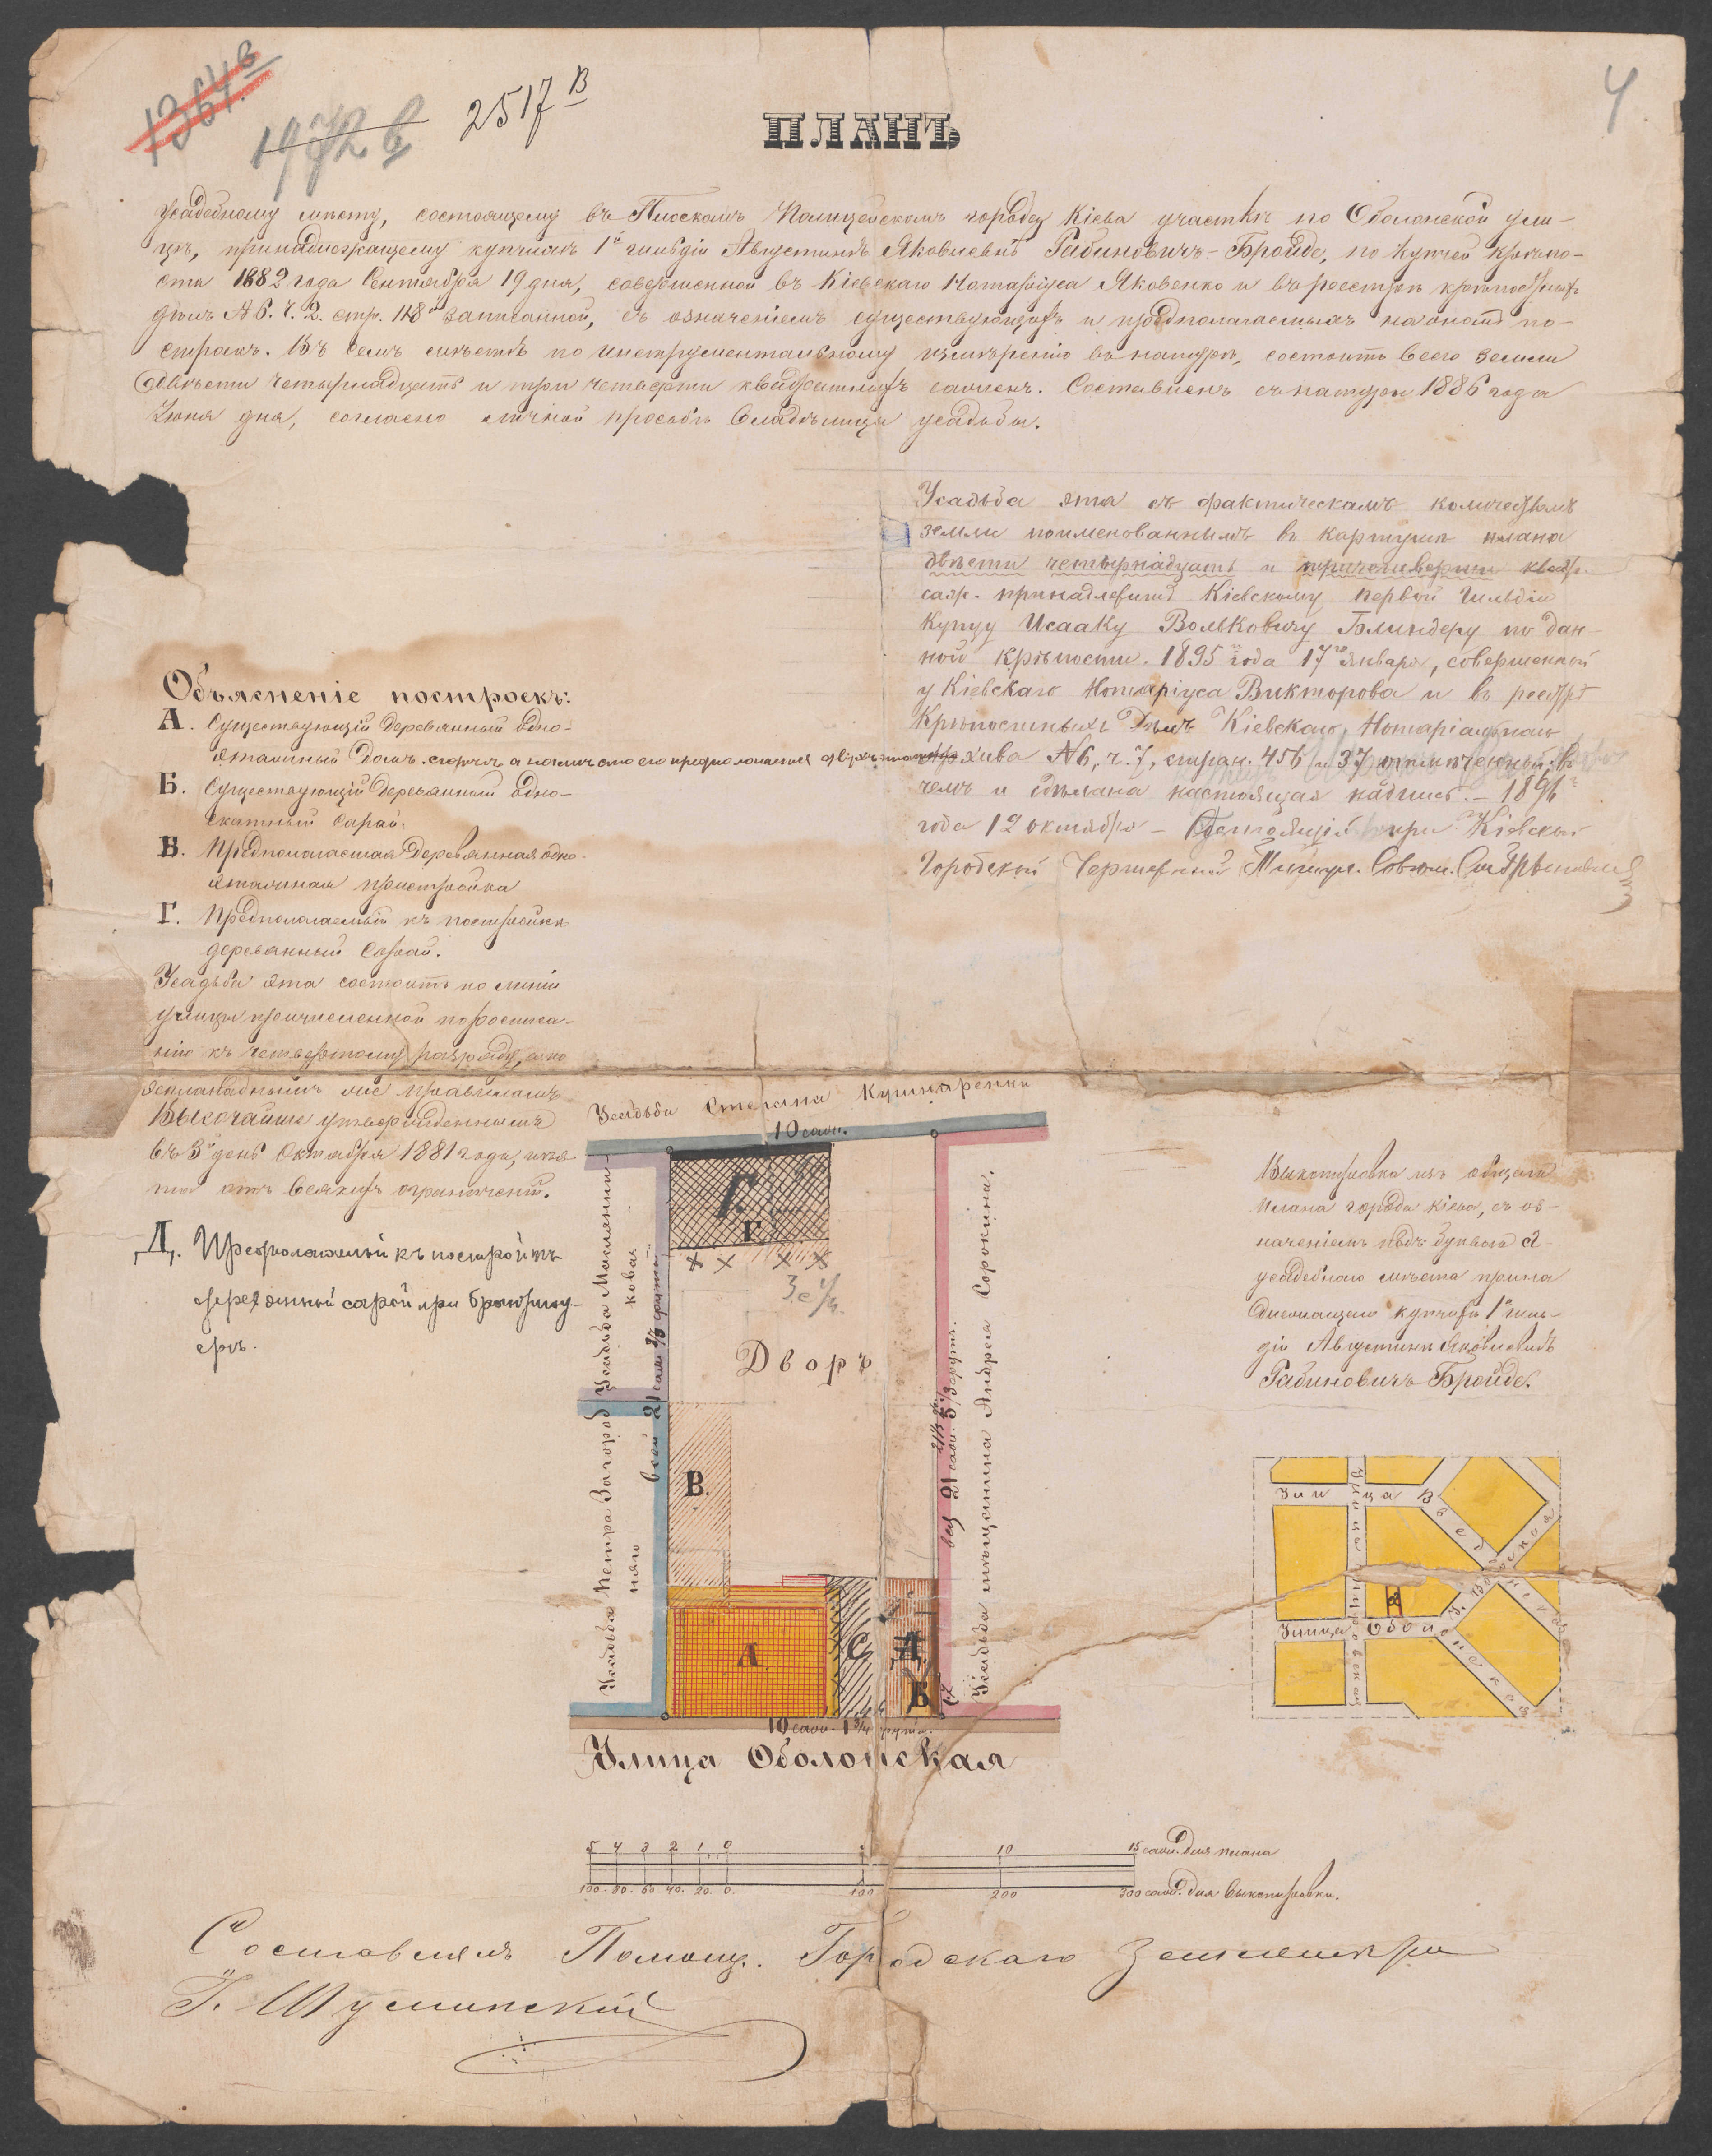 1364 в
1972 в
2517 В
4
ПЛАНЪ
Усадебному мѣсту, состоящему въ Плоскомъ Полицейскомъ города Кіева участкѣ по Оболонской ули-
цѣ, принадлежащему купчихѣ 1й гильдіи Августинѣ Яковлевнѣ Рабиновичъ-Бройде, по купчей крѣпо-
сти 1882 года Сентября 19 дня, совершенной въ Кіевскаго Нотаріуса Яковенко и въ реестрѣ крѣпостныхъ
дѣлъ № 6. ч. 2. стр. 118й записанной, съ означеніемъ существующихъ и предполагаемыхъ на ономъ по-
строекъ. Въ семъ мѣстѣ по инструментальному измѣренію въ натурѣ, состоитъ всего земли
двѣсти четырнадцать и три четверти квадратныхъ сажень. Составленъ съ натуры 1886 года
Іюня дня, согласно личной просьбѣ владѣлицы усадьбы.
Усадьба эта съ фактическимъ количествомъ
земли поименованнымъ въ картушѣ плана
двѣсти четырнадцать и три четверти квадр.
саж. принадлежитъ Кіевскому первой гильдіи
купцу Исааку Вольковичу Блиндеру по дан-
ной крѣпости 1895 года 17го января, совершенной
у Кіевскаго Нотаріуса Викторова и въ реестрѣ
крѣпостныхъ дѣлъ Кіевскаго Нотаріальнаго
Архива № 6, ч. 7, стран. 456 и 37 отмѣченной, въ
чемъ и сдѣлана настоящая надпись. – 1896
года 12 октября – при Кіевской
Городской Чертежной
Объясненіе построекъ:
А. Существующій деревянный одно-
этажный домъ. сгорѣлъ а на мѣсто его предположенъ
Б. Существующій деревянный одно-
скатный сарай.
В. Предполагаемая деревянная одно-
этажная пристройка
Г. Предполагаемый къ постройкѣ
деревянный сарай.
Усадьба эта состоитъ по линіи
улицы причисленной по росписа-
нію къ четвертому разряду, а по
эспланаднымъ же правиламъ
Высочайше утвержденнымъ
въ 3й день Октября 1881 года, изъя-
та отъ всякихъ ограниченій.
Д. Предположенный къ постройкѣ
деревянный сарай при брантмау-
ерѣ.
Усадьба Степана Кушнаренки
10 саж.
Г.
Г.
Дворъ
В.
А.
С
Д.
Б.
Усадьба Масленни-
кова
Усадьба Петра Загород-
няго
всей 21 саж.
Усадьба мѣщанина Андрея Сорокина.
всей 21 саж. 5⅓ фут.
10 саж. 1¾ фута.
Улица Оболонская
Выкопировка изъ общаго
плана города Кіева, съ оз-
наченіемъ подъ буквою а
усадебнаго мѣста прина
длежащаго купчихѣ 1й гиль-
діи Августинѣ Яковлевнѣ
Рабиновичъ Бройде.
Улица Введ
енская
У. Волоская
а
Улица Оболонская
5 4 3 2 1 0 5 10 15 саж. для плана
100. 80. 60. 40. 20. 0. 100 200 300 саж. для выкопировки.
Составлялъ Помощ. Городскаго Землемѣра
Г. Шуминскій